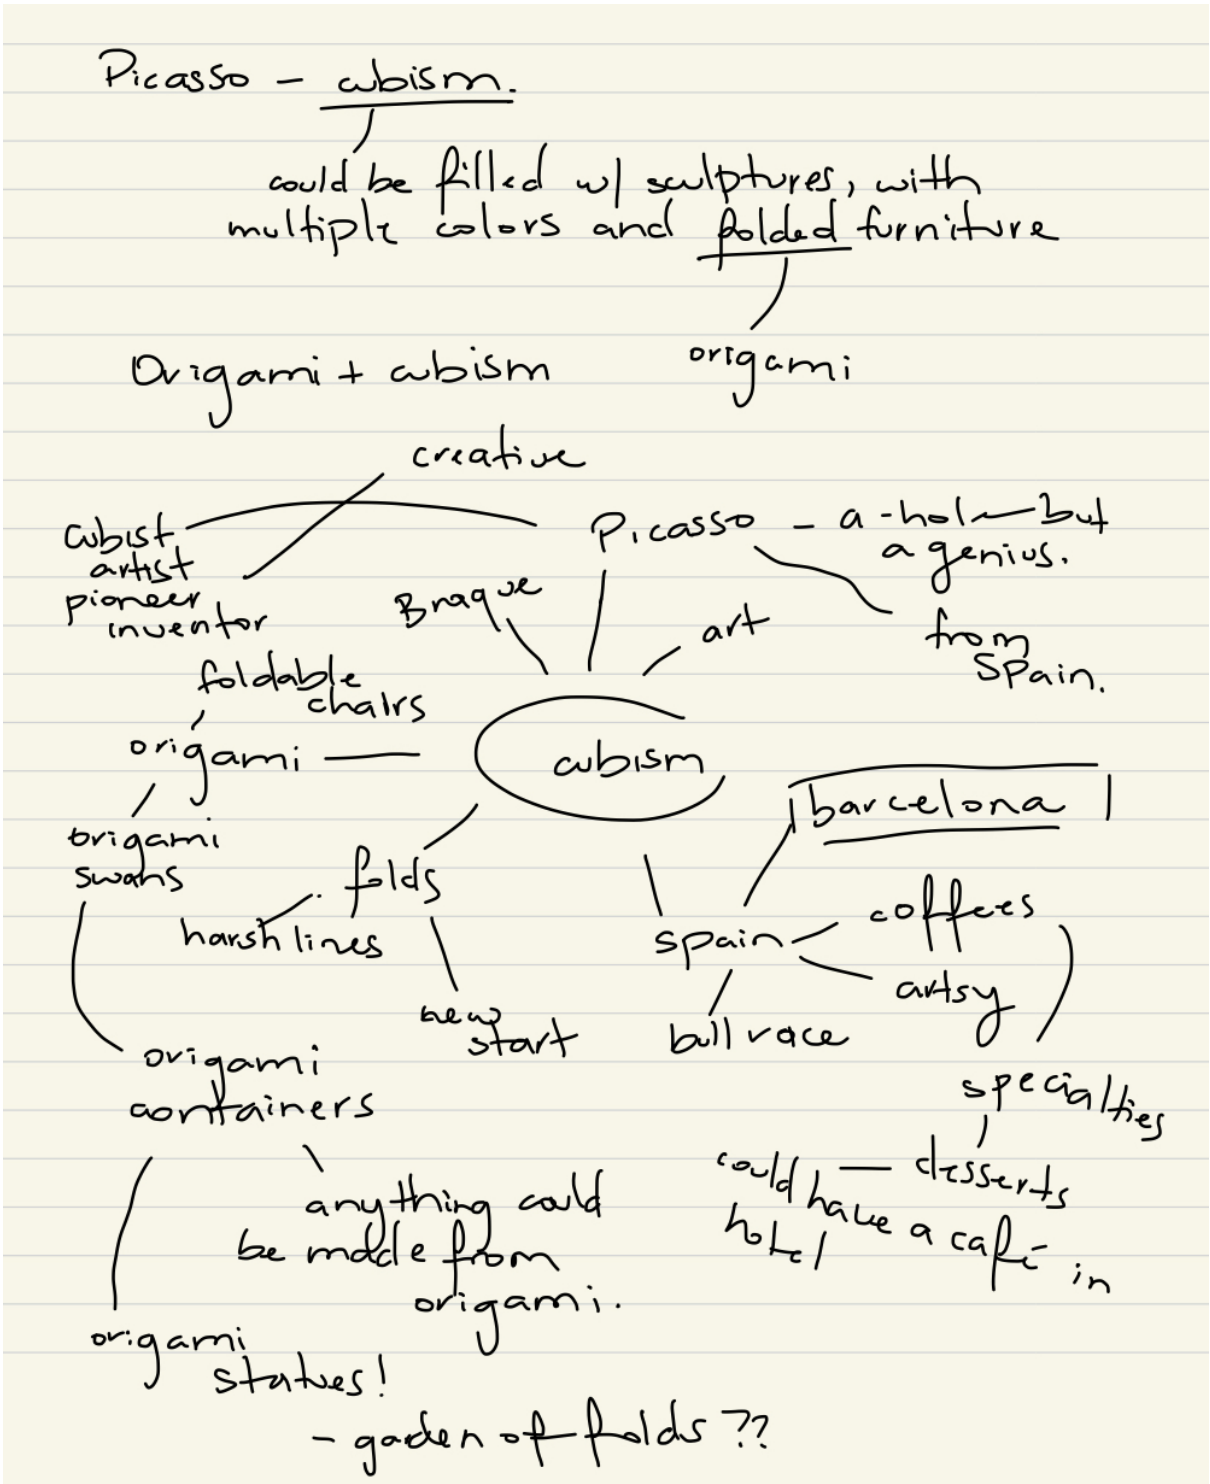 Picasso - cubism.
could be filled w/ sculptures, with
multiple colors and folded furniture
origami
Origami + cubism
creative
cubist
artist
pioneer
inventor
Picasso - a-hole but
a genius.
from
Spain.
Braque
art
foldable
chairs
origami
cubism
barcelona
origami
swans
folds
harsh lines
new
start
spain
coffees
artsy
bull race
specialties
desserts
could have a café in
hotel
origami
containers
anything could
be made from
origami.
origami
statues!
- garden of folds ??